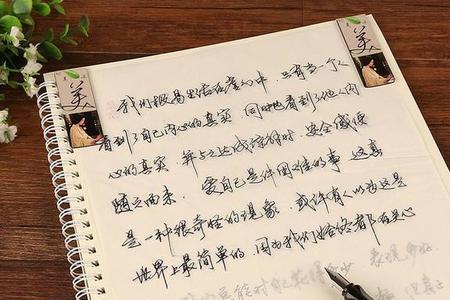 美
美
我们极易生活在虚幻中，只有当一个人
看到了自己内心的真实 同时也看到了他人内
心的真实 并与之达成谅解时 安全感便
随之而来 爱自己是件困难的事 这真
是一种很奇怪的现象 或许有人以为这是
世界上最简单的 因为我们始终都在关心
能对自己